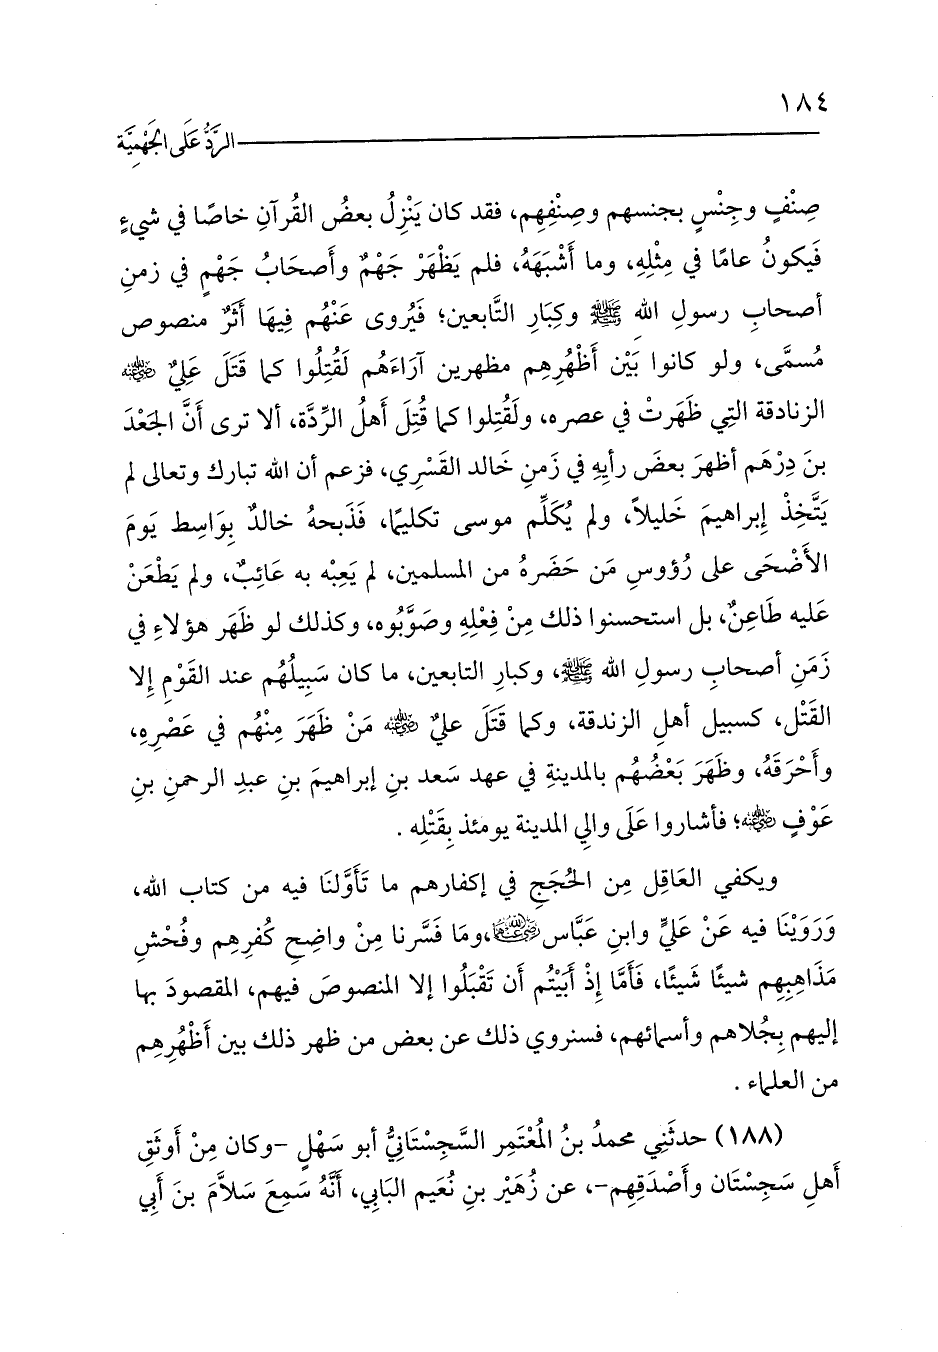 ١٨٤
الرَّدُّ عَلَى الجَهْمِيَّة
صِنْفٍ وجِنْسٍ بجنسهم وصِنْفِهِم، فقد كان يَنْزِلُ بعضُ القُرآنِ خاصًا في شيءٍ
فَيكونُ عامًا في مِثْلِهِ، وما أَشْبَهَهُ، فلم يَظْهَرْ جَهْمٌ وأَصحَابُ جَهْمٍ في زمنِ
أصحابِ رسولِ الله ﷺ وكِبَارِ التَّابعين؛ فَيُروى عَنْهُم فِيهَا أَثَرٌ منصوص
مُسمَّى، ولو كانوا بَيْن أَظْهُرِهِم مظهرين آرَاءَهُم لَقُتِلُوا كما قَتَلَ عَلِيٌ رضي الله عنه
الزنادقة التِي ظَهَرَتْ في عصره، ولَقُتِلوا كما قُتِلَ أهلُ الرِّدَّة، ألا ترى أَنَّ الجَعْدَ
بنَ دِرْهَم أظهرَ بعضَ رأيِهِ في زَمنِ خَالد القَسْرِي، فزعم أن الله تبارك وتعالى لم
يَتَّخِذْ إبراهيمَ خَليلاً، ولم يُكَلِّم موسى تكليمًا، فَذَبحهُ خالدٌ بِوَاسِط يَومَ
الأَضْحَى على رُؤوسِ مَن حَضَرهُ من المسلمين، لم يَعِبْه به عَائِبٌ، ولم يَطْعَنْ
عَليه طَاعِنٌ، بل استحسنوا ذلك مِنْ فِعْلِهِ وصَوَّبُوه، وكذلك لو ظَهَر هؤلاءِ في
زَمَنِ أصحابِ رسولِ الله ﷺ، وكبارِ التابعين، ما كان سَبِيلُهُم عند القَوْمِ إلا
القَتْل، كسبيل أهلِ الزندقة، وكما قَتَلَ عليٌ رضي الله عنه مَنْ ظَهَرَ مِنْهُم في عَصْرِهِ،
وأَحْرَقَهُ، وظَهَرَ بَعْضُهُم بالمدينةِ في عهد سَعد بنِ إبراهيمَ بنِ عبدِ الرحمنِ بنِ
عَوْفٍ رضي الله عنه؛ فأشاروا عَلَى والِي المدينة يومئذ بِقَتْلِه .
ويكفي العَاقِل مِن الحُجَجِ في إكفارهم ما تَأَوَّلنَا فيه من كتاب الله،
وَرَوَيْنَا فيه عَنْ عَليٍّ وابنِ عَبَّاس رضي الله عنهما، ومَا فَسَّرنا مِنْ واضِحِ كُفرِهِم وفُحْشِ
مَذَاهِبِهِم شيئًا شَيئًا، فَأَمَّا إِذْ أَبَيْتُم أَن تَقْبَلُوا إلا المنصوصَ فيهم، المقصودَ بها
إليهم بِحُلاهم وأسمائهم، فسنروي ذلك عن بعض من ظهر ذلك بين أَظْهُرِهِم
من العلماء .
(١٨٨) حدثَنِي محمدُ بنُ المُعْتَمِر السَّجِسْتَانِيُّ أبو سَهْلٍ -وكان مِنْ أَوثَقِ
أَهلِ سَجِسْتَان وأَصْدَقِهِم-، عن زُهَيْر بنِ نُعَيم البَابِي، أَنَّهُ سَمِعَ سَلاَّمَ بنَ أَبِي